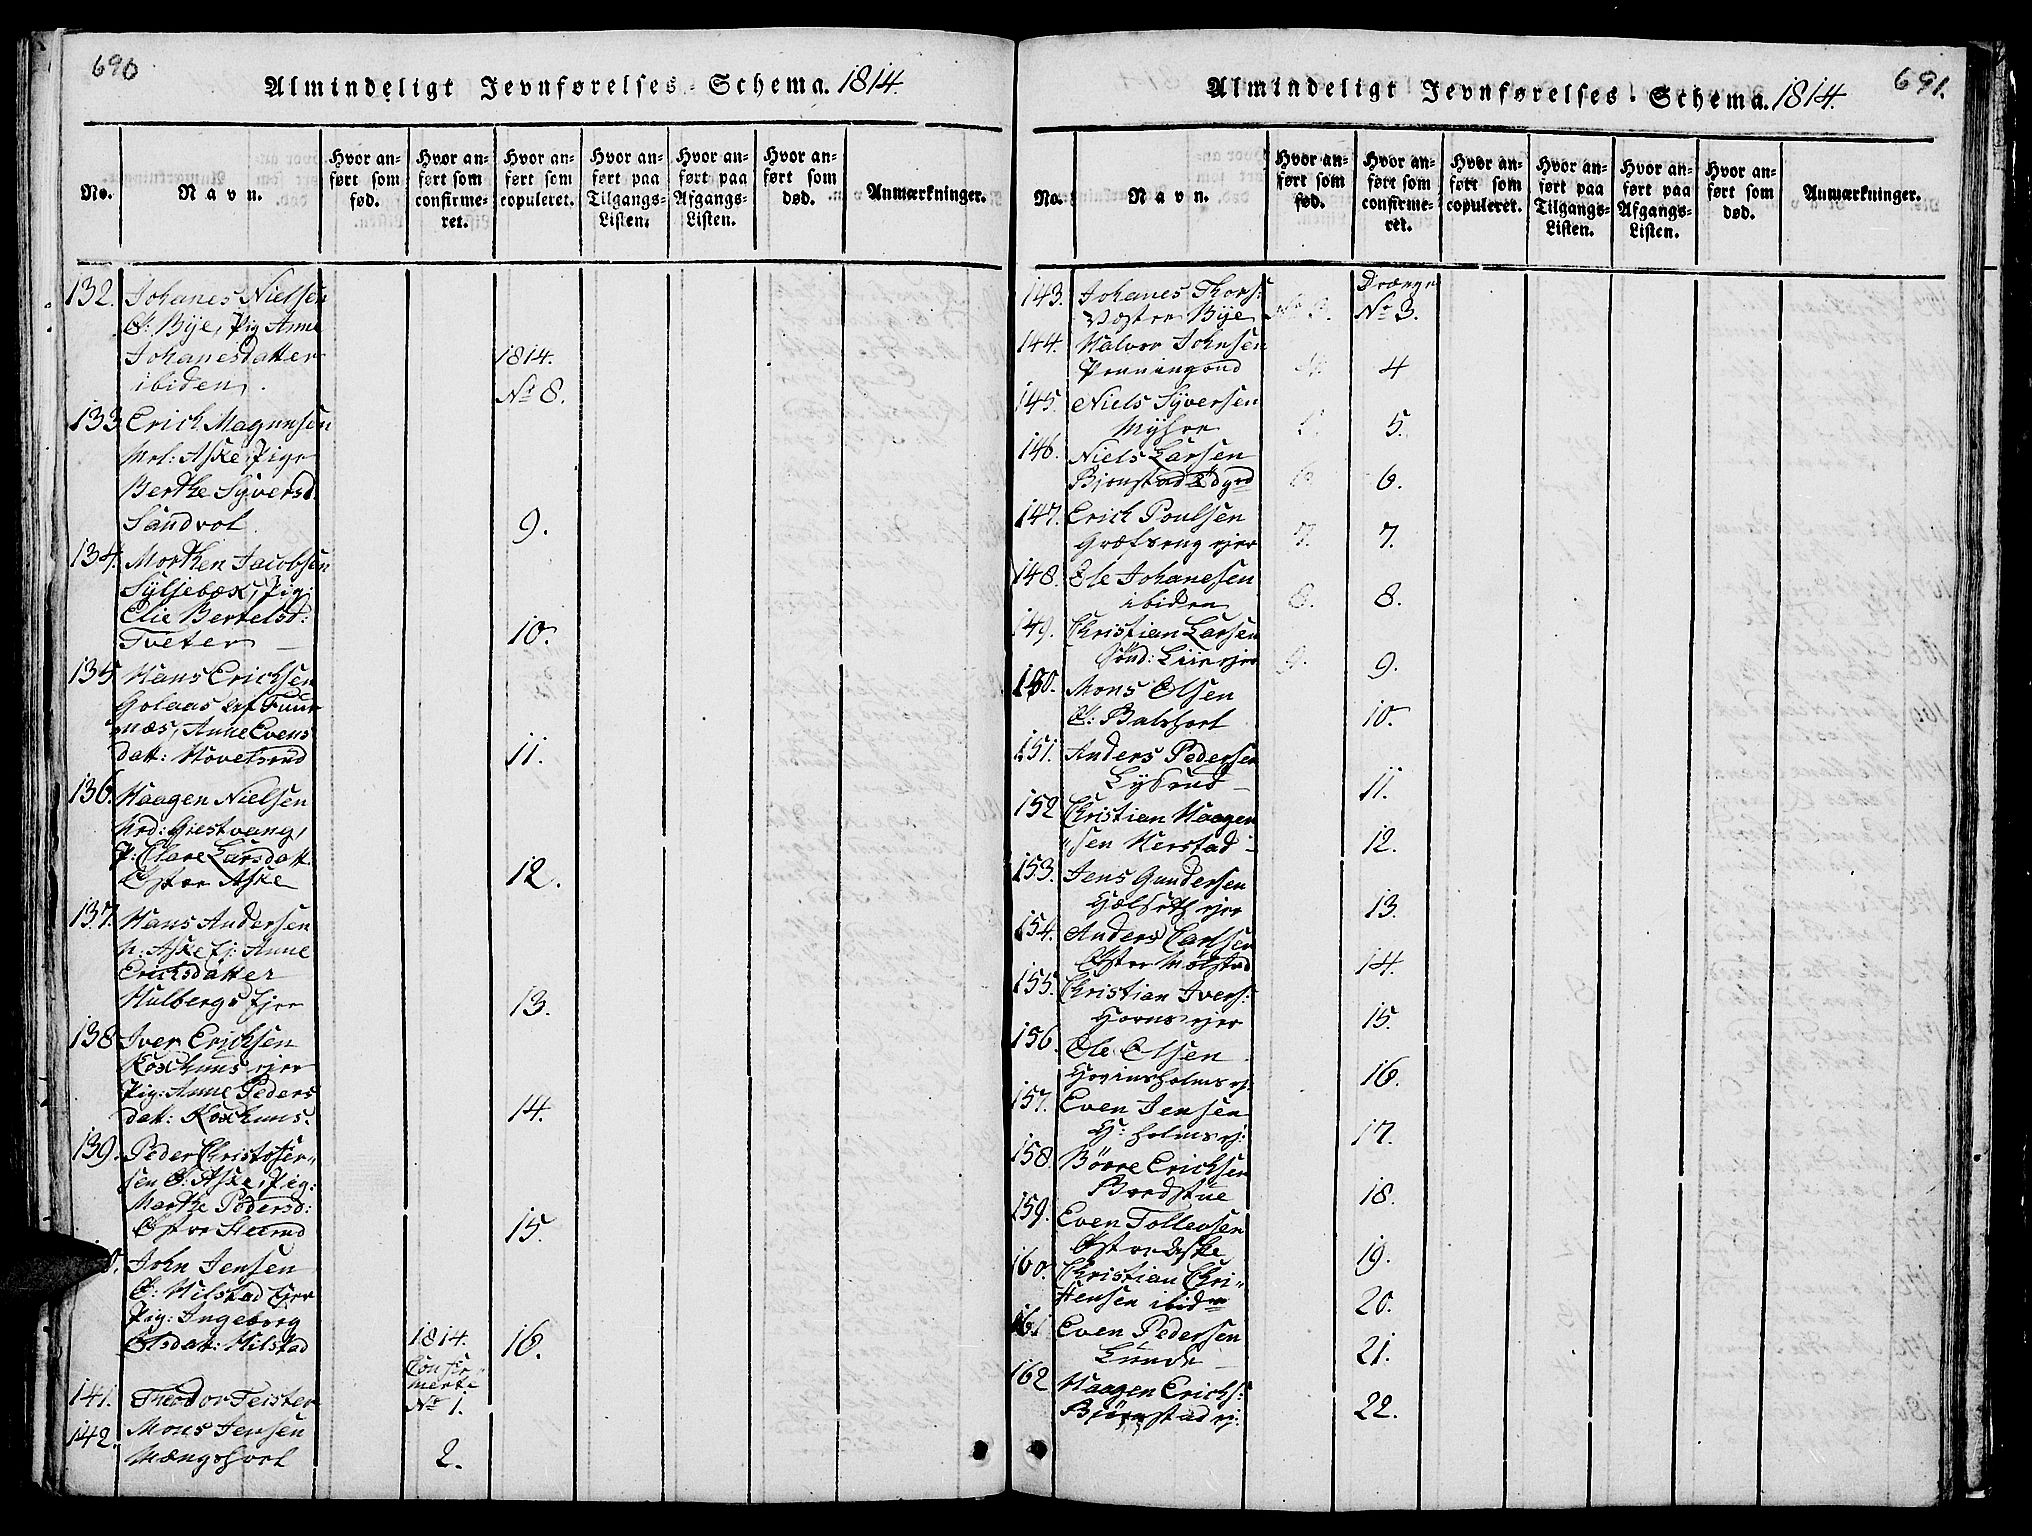 690
Almindeligt Jevnførelses-Schema. 1814.
No.
Navn.
Hvor an-
ført som
fød.
Hvor an-
ført som
confirme-
ret.
Hvor an-
ført som
copuleret.
Hvor an-
ført paa
Tilgangs-
Listen.
Hvor an-
ført paa
Afgangs-
Listen.
Hvor an-
ført som
død.
Anmærkninger.
132. Johanes Nielsen
Ø: Bÿe, Pig Anne
Johanesdatter 1814.
ibiden. No 8.
133 Erich Magnusen
Mel: Aske, Pige
Berthe Syversd.
Sandvol. 9.
134. Morthen Jacobsen
Syljebæx, Pig:
Elie Bertelsd:
Tveter 10.
135 Hans Erichsen
Golaas
næs, Anne Evens
datt: Hovelsrud 11.
136. Haagen Nielsen
Nrd: Giestvang,
P: Clare Larsdatt.
Østre Aske 12.
137. Hans Andersen
N: Aske Ej: Anne
Erichsdatter
Hulbergs Ejer 13.
138 Iver Erichsen
Koxhuus ejer
Pig: Anne Peders
datt: Koxhuus. 14.
139. Peder Christofer,,
sen Ø: Aske, Pig:
Marthe Pedersd:
Østre Steenrud 15.
0. John Jensen
Ø: Hilstad Ejer
Pig: Ingeborg
Olsdatt: Hilstad 1814. 16.
Confir
merte
141. Theodor Teister No 1.
142. Mons Jensen
Mængshoel 2.
Almindeligt Jevnførelses-Schema. 1814. 691.
No.
Navn.
Hvor an-
ført som
fød.
Hvor an-
ført som
confirme-
ret.
Hvor an-
ført som
copuleret.
Hvor an-
ført paa
Tilgangs-
Listen.
Hvor an-
ført paa
Afgangs-
Listen.
Hvor an-
ført som
død.
Anmærkninger.
Drænge
143. Johanes Thors:
Vestre Bye No 3.
144. Halvor Johnsen
Penningrud 4
145. Niels Syversen
Myhre 5.
146. Niels Larsen
Bjønstad Ødgrd 6.
147. Erich Poulsen
Grefseng ejer 7. 7.
148. Ole Johanesen
ibiden 8. 8.
149. Christian Larsen
Sønd: Liie ejer 9. 9.
150. Mons Olsen
Ø: Balshoel 10.
151. Anders Pedersen
Lysrud 11.
152 Christian Haagen
,,sen Herstad 12.
153. Jens Gundersen
Hælseth ejer 13.
154. Anders Carlsen
Østre Mølstad 14.
155. Christian Ivers:
Horns ejer 15.
156. Ole Olsen
Hovinsholms ej 16.
157. Even Jensen
H: holms ej: 17.
158. Børre Erichsen
Bredstue 18.
159. Even Tollevsen
Østre Aske 19.
160. Christian Chri,,
stensen ibidm 20.
161 Even Pedersen
Lunde 21.
162 Haagen Erichs:
Bjørnstad ej: 22.